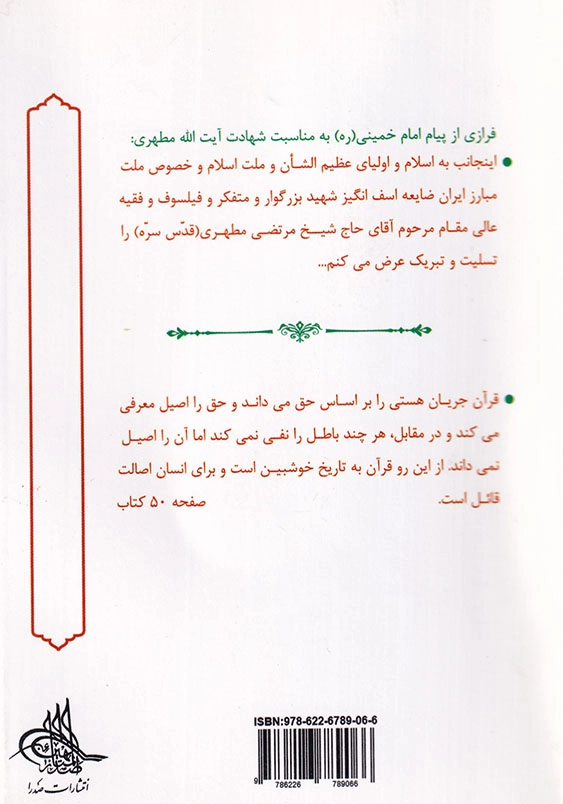 فرازی از پیام امام خمینی(ره) به مناسبت شهادت آیت الله مطهری:
● اینجانب به اسلام و اولیای عظیم الشأن و ملت اسلام و خصوص ملت
مبارز ایران ضایعه اسف انگیز شهید بزرگوار و متفکر و فیلسوف و فقیه
عالی مقام مرحوم آقای حاج شیخ مرتضی مطهری(قدّس سرّه) را
تسلیت و تبریک عرض می کنم...
● قرآن جریان هستی را بر اساس حق می داند و حق را اصیل معرفی
می کند و در مقابل، هر چند باطل را نفی نمی کند اما آن را اصیل
نمی داند. از این رو قرآن به تاریخ خوشبین است و برای انسان اصالت
قائل است. صفحه ۵۰ کتاب
ISBN:978-622-6789-06-6
9 786226 789066
انتشارات صدرا